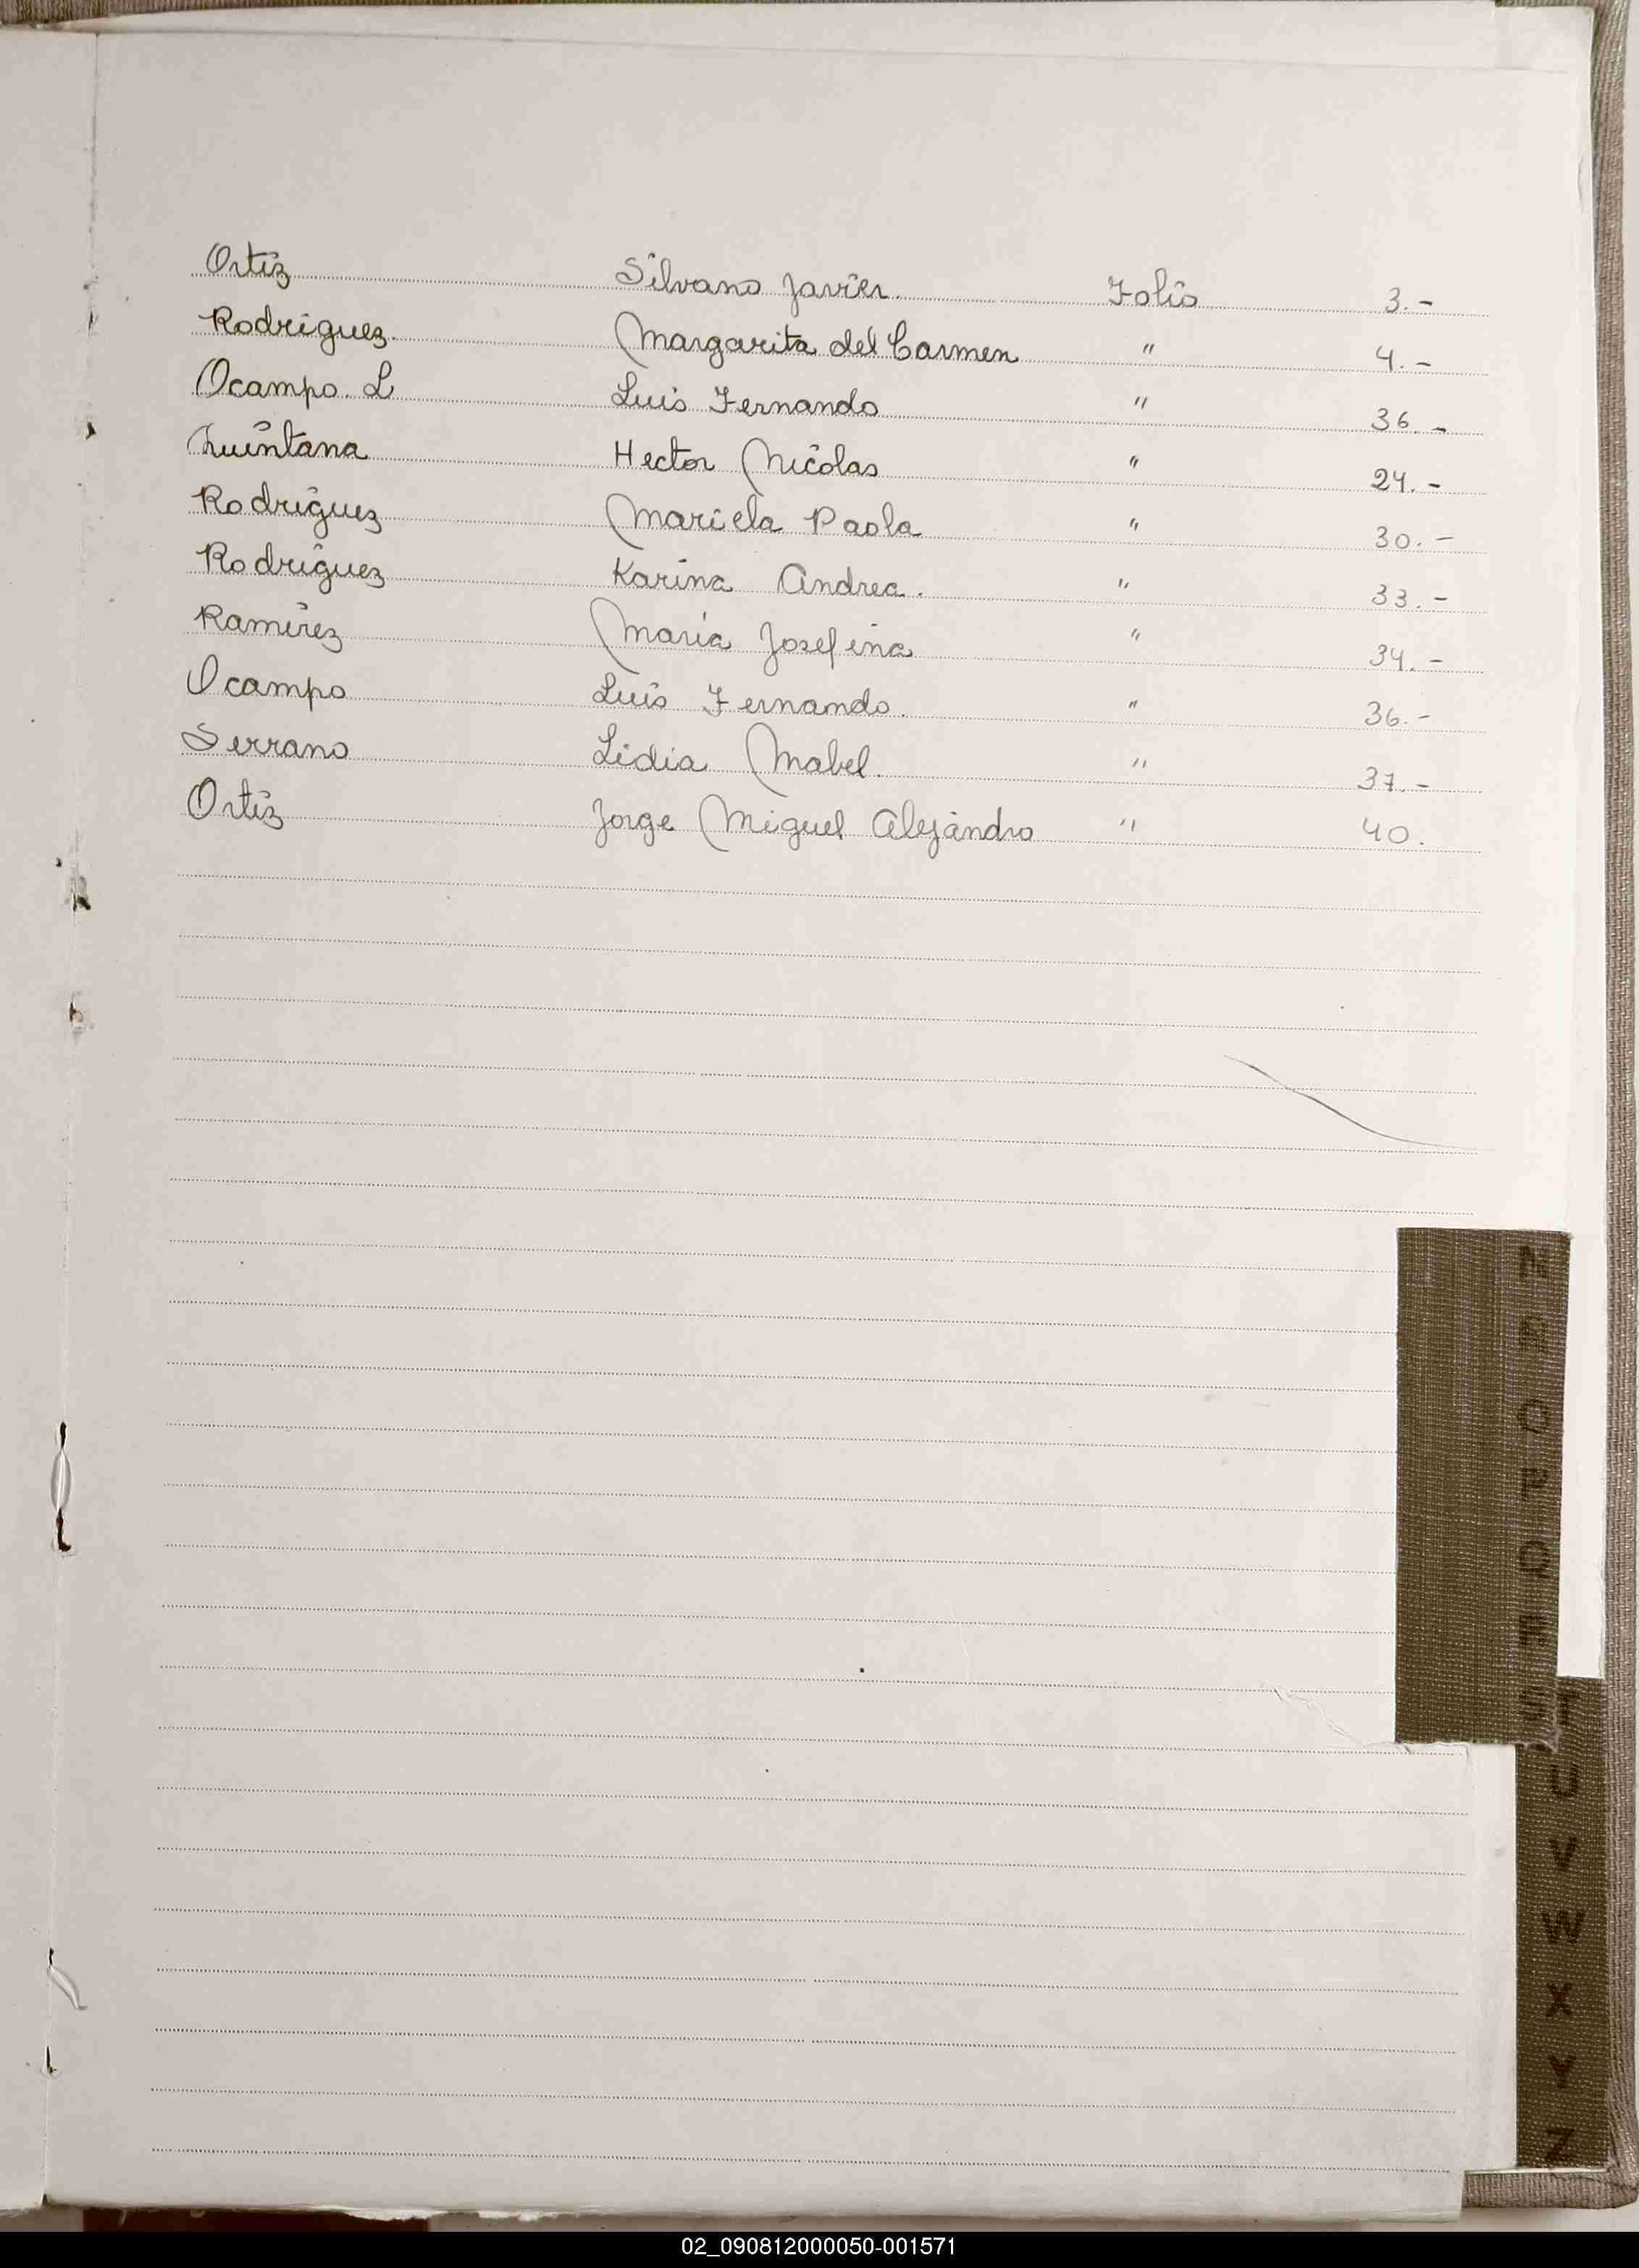 Ortiz Silvano Javier. Folio 3.-
Rodriguez. Margarita del Carmen " 4.-
Ocampo. L Luis Fernando " 36.-
Quintana Hector Nicolas " 24.-
Rodriguez Mariela Paola " 30.-
Rodriguez Karina Andrea. " 33.-
Ramirez María Josefina " 34.-
Ocampo Luis Fernando. " 36.-
Serrano Lidia Mabel. " 37.-
Ortiz Jorge Miguel Alejandro " 40.
N
Ñ
O
P
Q
R
S
T
U
V
W
X
Y
Z
02_090812000050-001571